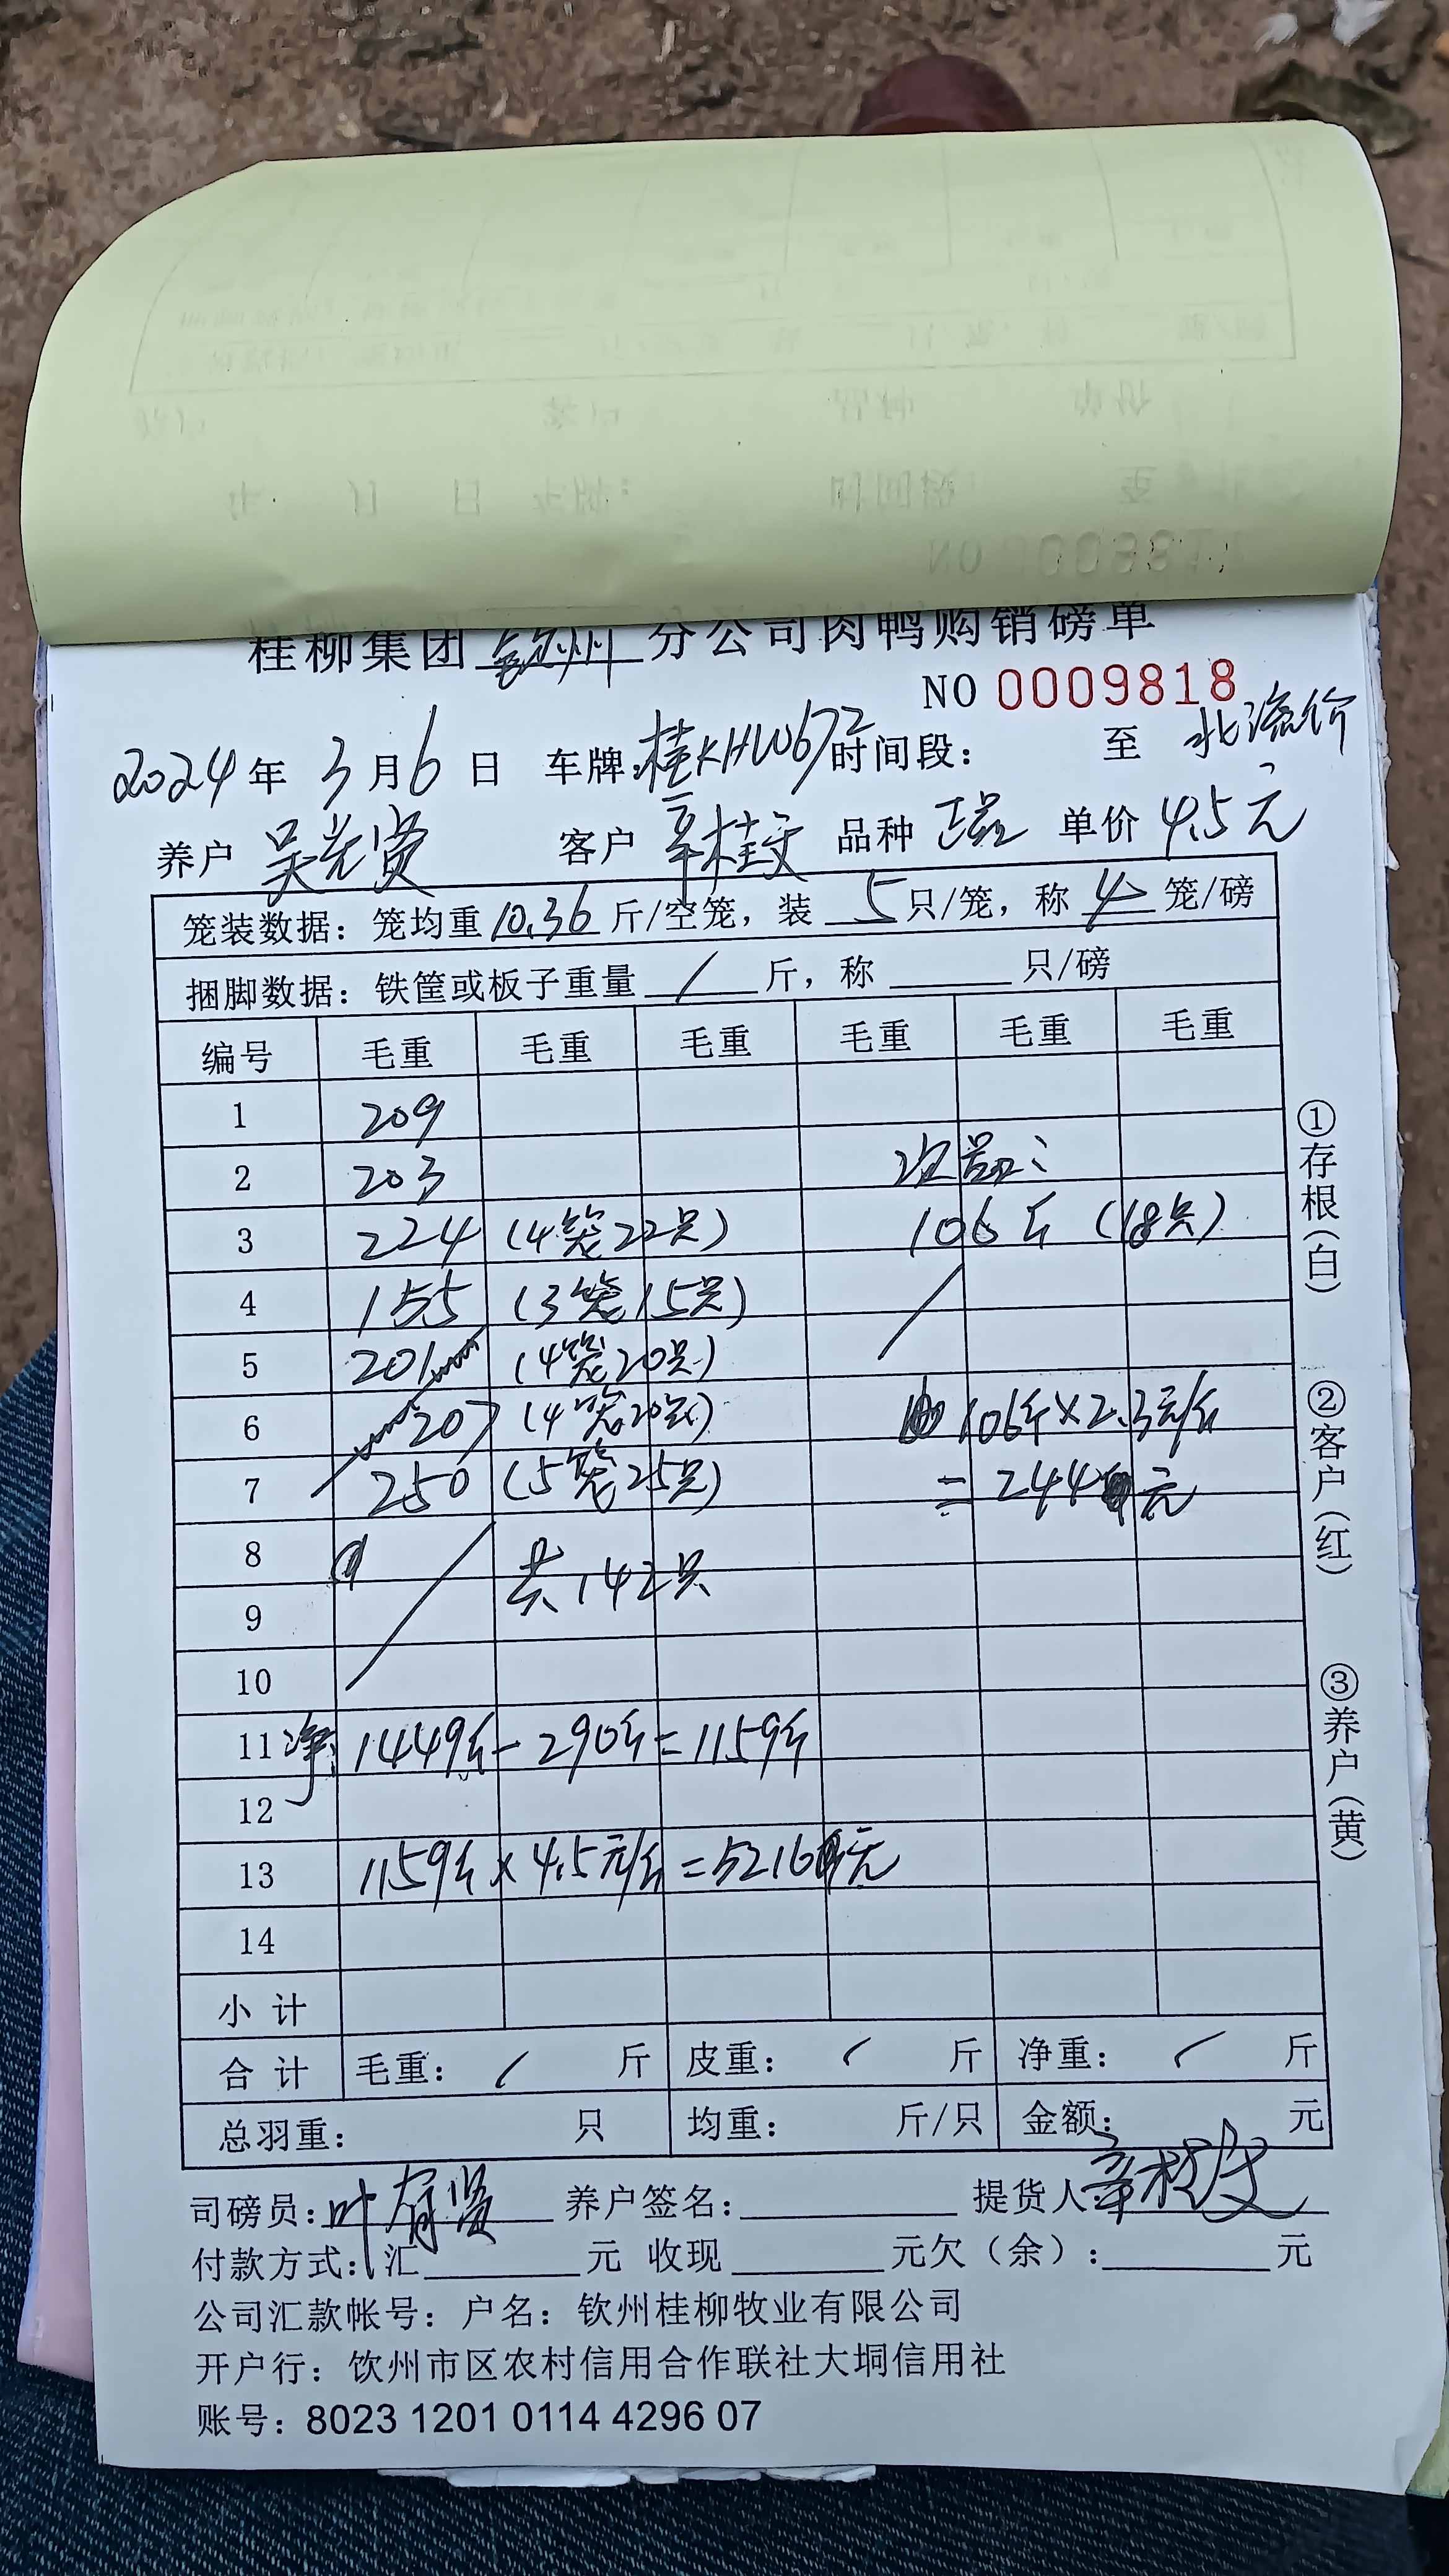 桂柳集团 钦州 分公司肉鸭购销磅单
NO 0009818
2024年 3月6日 车牌:桂KHW672 时间段: 至 北流价
养户 吴光贤 客户 辛桂文 品种 单价 4.5元
笼装数据:笼均重 10.36 斤/空笼,装 5 只/笼,称 4 笼/磅
捆脚数据:铁筐或板子重量 / 斤,称 只/磅
编号 毛重 毛重 毛重 毛重 毛重 毛重
1 209
2 203 次品:
3 224 (4笼22只) 106斤 (18只)
4 155 (3笼15只)
5 201 (4笼20只)
6 207 (4笼20只) 106斤×2.3元/斤
7 250 (5笼25只) =244元
8 共142只
9
10
11 净: 1449斤-290斤=1159斤
12
13 1159斤×4.5元/斤=5216元
14
小计
合计 毛重: / 斤 皮重: / 斤 净重: / 斤
总羽重: 只 均重: 斤/只 金额: 元
司磅员:叶有贤 养户签名: 提货人:辛桂文
付款方式:汇 元 收现 元欠(余): 元
公司汇款帐号:户名:钦州桂柳牧业有限公司
开户行:钦州市区农村信用合作联社大垌信用社
账号:8023 1201 0114 4296 07
①存根(白)
②客户(红)
③养户(黄)